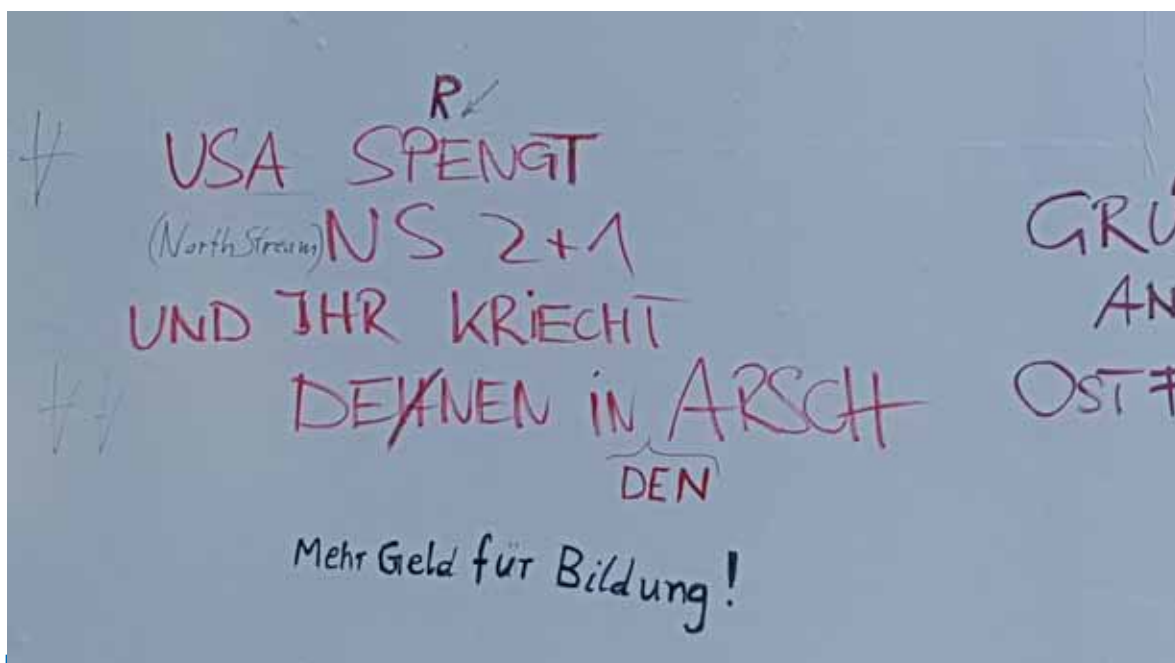 R
USA SPENGT
(North Stream) NS 2+1
UND IHR KRIECHT
DEHNEN IN ARSCH
DEN
Mehr Geld für Bildung!
GRÜ
AN
OST